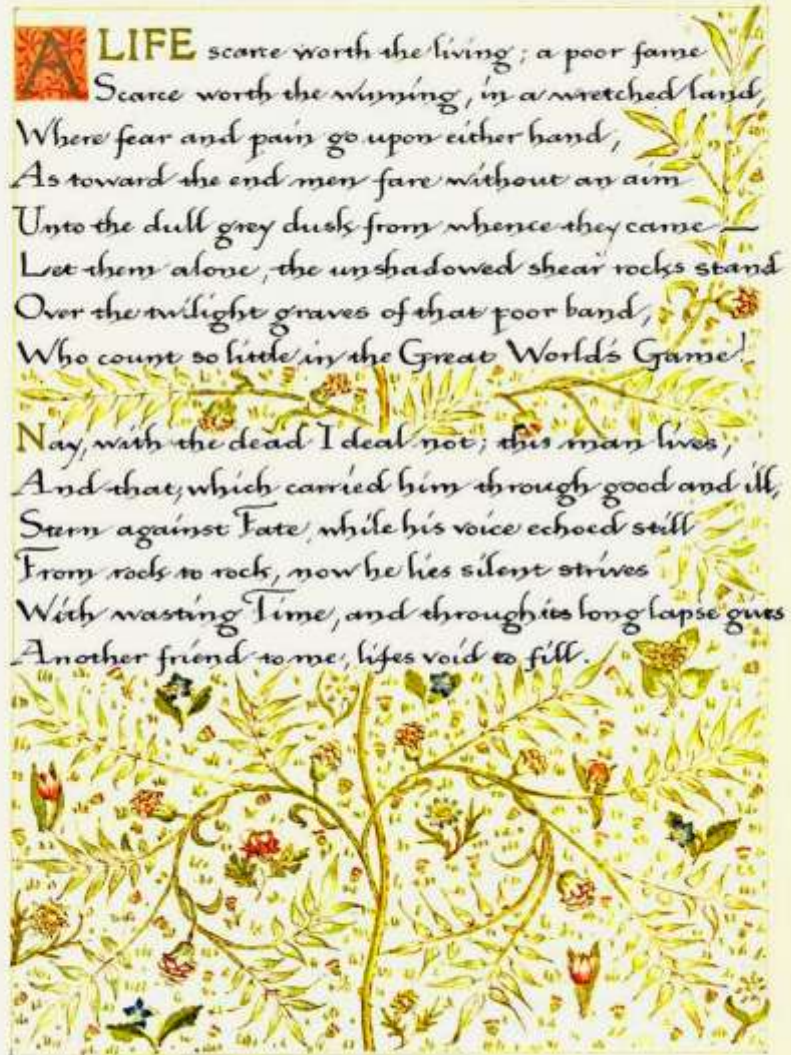 A LIFE scarce worth the living; a poor fame
Scarce worth the winning, in a wretched land,
Where fear and pain go upon either hand,
As toward the end men fare without an aim
Unto the dull grey dusk from whence they came —
Let them alone, the unshadowed shear rocks stand
Over the twilight graves of that poor band,
Who count so little in the Great World's Game!
Nay, with the dead I deal not; this man lives,
And that, which carried him through good and ill,
Stern against Fate, while his voice echoed still
From rock to rock, now he lies silent strives
With wasting Time, and through its long lapse gives
Another friend to me, lifes void to fill.